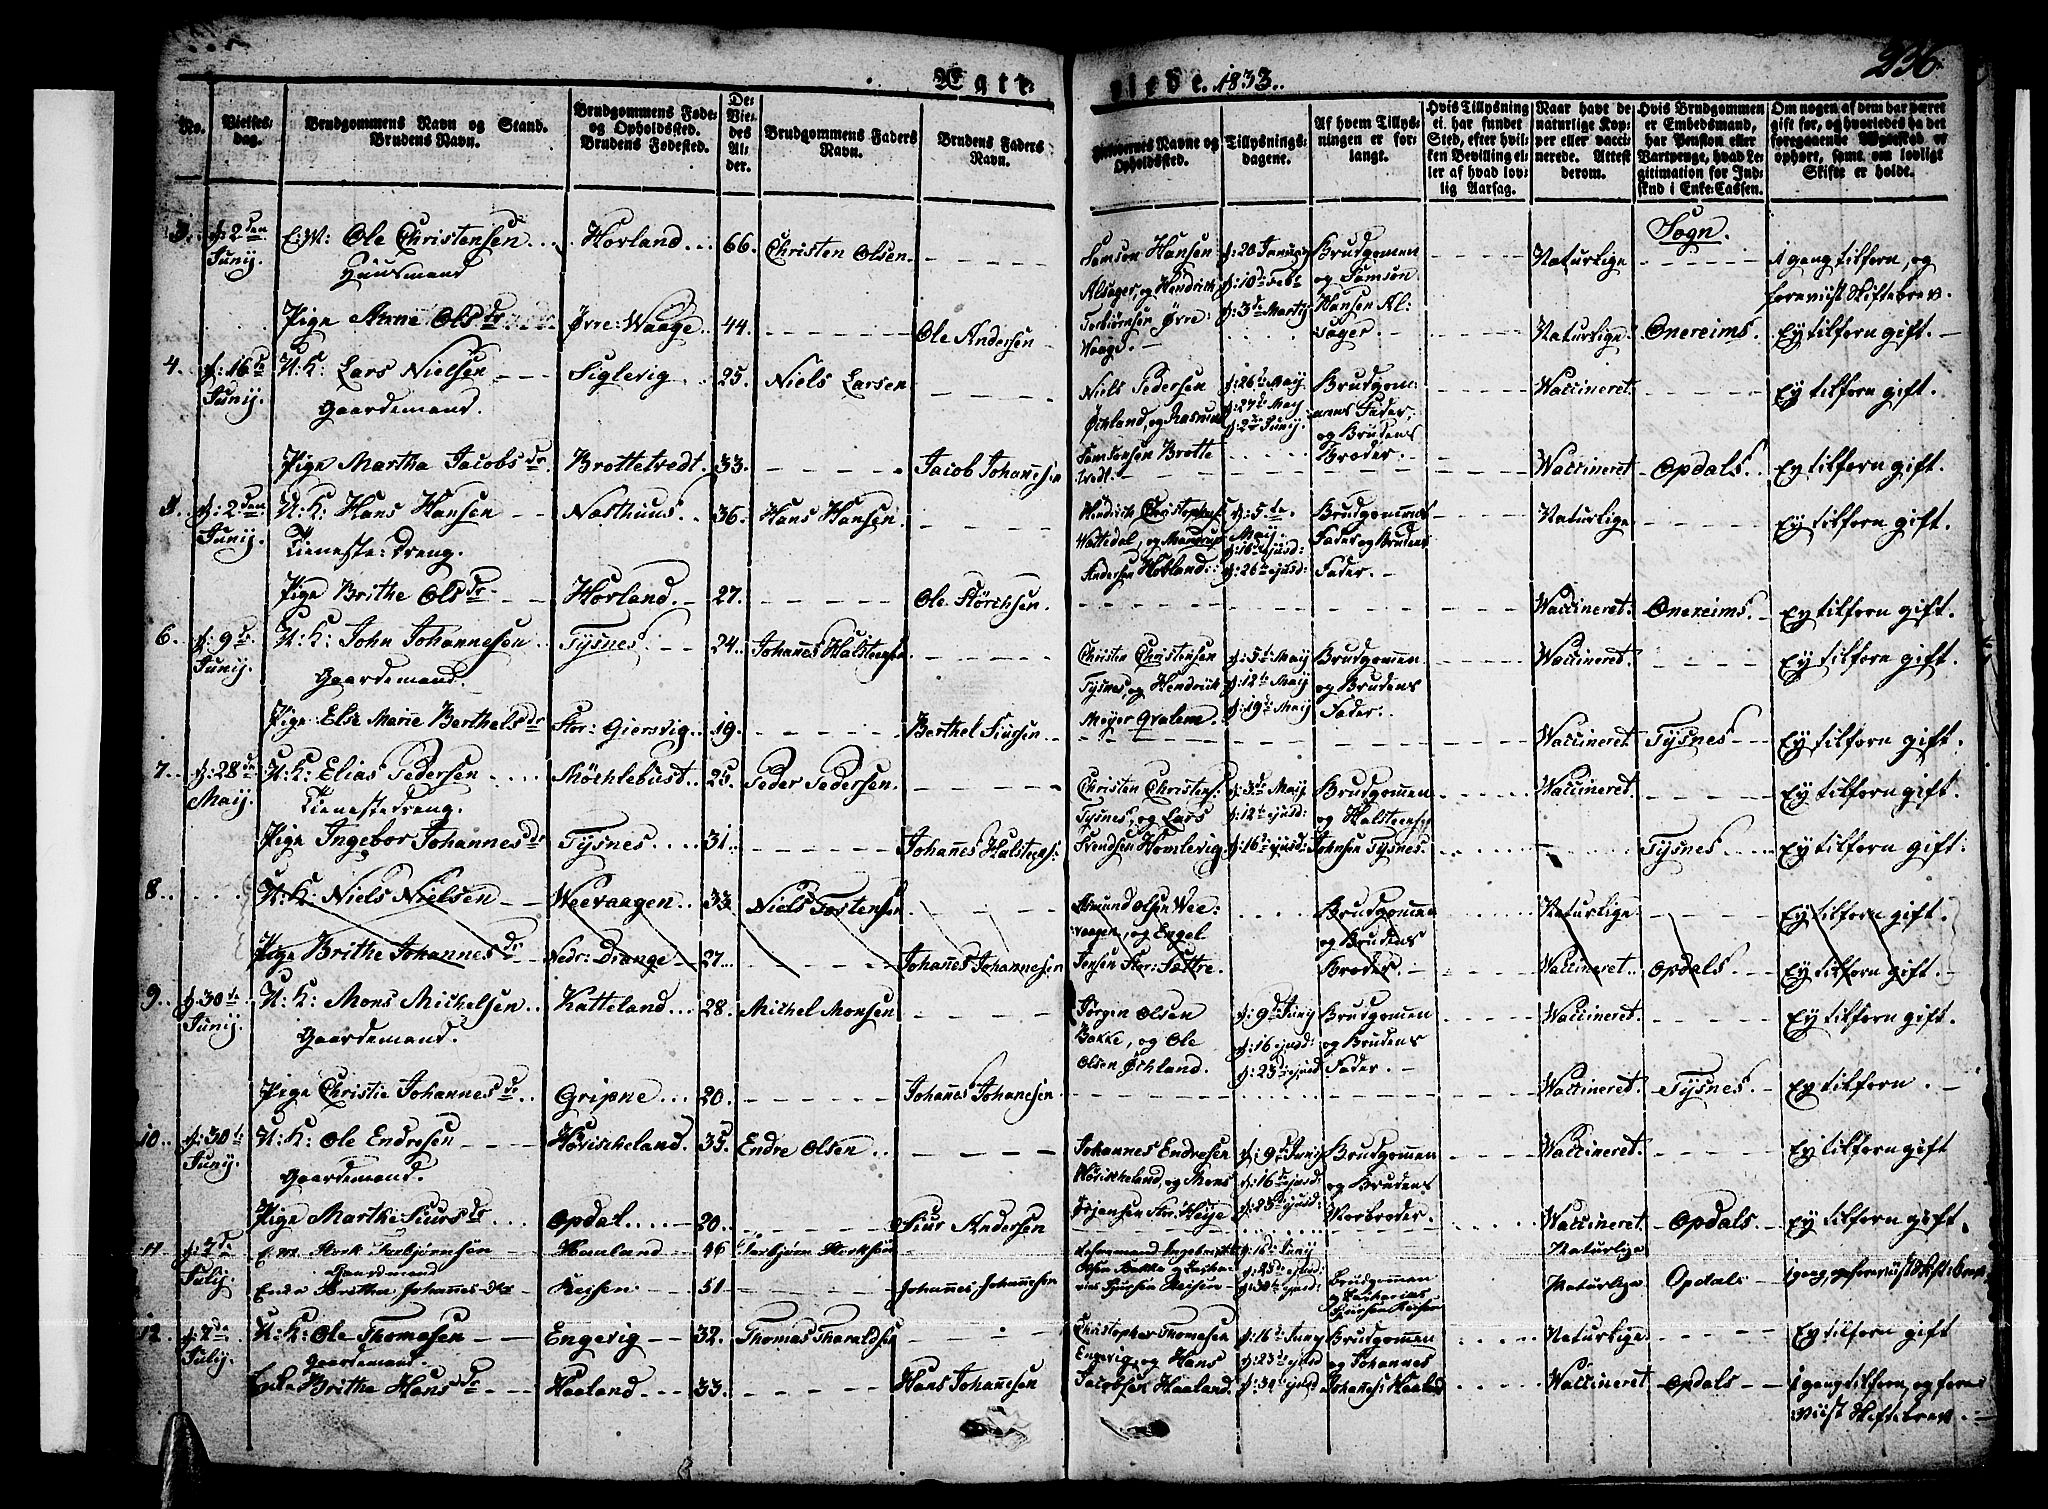 Ægte-
viede. 1833.
236.
No.
Vielses-
dag.
Brudgommens Navn og Stand.
Brudens Navn.
Brudgommens Føde-
og Opholdssted.
Brudens Fødested.
De
Vie-
des
Al-
der.
Brudgommens Faders
Navn.
Brudens Faders
Navn.
Forlovernes Navne og
Opholdssted.
Tillysnings-
dagene.
Af hvem Tillys-
ningen er for-
langt.
Hvis Tillysning
ei har fundet
Sted, efter hvil-
ken Bevilling el-
ler af hvad lov-
lig Aarsag.
Naar have de
naturlige Kop-
per eller vacci-
nerede. Attest
derom.
Hvis Brudgommen
er Embedsmand,
har Pension eller
Vartpenge, hvad Le-
gitimation for Ind-
skud i Enke-Cassen.
Om nogen af dem har været
gift før, og hvorledes da det
foregaaende Ægteskab er
ophørt, samt om lovligt
Skifte er holdt.
Sogn.
3. d: 2den Junij. E:M: Ole Christensen Horland 66. Christen Olsen
Huusmand
Samson Hansen Alsager, og Hendrich Torbiørnsen Øvre: Waage.
d: 20 Januarij d: 10de Febr d: 3de Martij
Brudgomen og Samson Hansen Alsager.
Naturlige
1 gang tilforn, og foreviist Skiftebrev.
Pige Anne Olsdr Øvre-Waage 44. Ole Andersen
Naturlige Onereims Ey tilforn gift.
4. d: 16de Junij. U:K: Lars Nielsen Siglevig 25. Niels Larsen
Gaardemand.
Niels Pedersen Øchland, og Rasmus Samsonsen Brotte-tvedt.
d: 26de Maij d: 27de Maij d: 2den Junij.
Brudgommens Fader, og Brudens Broder.
Waccineret. Ey tilforn gift.
Pige Martha Jacobsdr Brottetvedt. 33. Jacob Johannesen
Waccineret Opdals. Ey tilforn gift.
5. d: 2den Junij. U:K: Hans Hansen Nasthuus 36. Hans Hansen
Tieneste-Dreng.
Brudgommens Fader og Brudens Fader.
Naturlige Ey tilforn gift.
Pige Brithe Olsdr Horland 27.
Waccineret. Onereims Ey tilforn gift.
6. d: 9de Junij. U:K: John Johannesen Tysnes 24. Johannes Halsteensen
Gaardemand.
Christen Christensen Tysnes, og Hendrich Meyer Qvalem.
d: 5te Maij d: 12te Maij d: 19de Maij
Brudgommen og Brudens Fader.
Waccineret. Ey tilforn gift.
Pige Else Marie Berthelsdr Stor: Giersvig 19. Berthel Siursen
Waccineret Tysnes Ey tilforn gift.
7. d: 28de Maij. U:K: Elias Pedersen Møchlebust 25. Peder Pedersen
Tienestedreng.
Christen Christens: Tysnes, og Lars Svendsen Homlevig
d: 3de Maij d: 12te ejusd: d: 16de ejusd:
Waccineret. Ey tilforn gift.
Pige Ingebor Johannesdr Tysnes 31. Johannes Halsteens:
Tysnes Ey tilforn gift.
8. U:K: Niels Nielsen Weevaagen 33. Niels Tostensen
Asmund Olsen Wee-vaagen, og Engel Jensen Stor: Sættre.
Brudgommen og Brudens Broder
Naturlige Ey tilforn gift.
Pige Brithe Johannesdr Nedr: Drange 27. Johannes Johannesen
Waccineret. Opdals Ey tilforn gift.
9. d: 30te Junij. U:K: Mons Michelsen Katteland 28. Michel Monsen
Gaardemand.
Jørgen Olsen Bakke, og Ole Olsen Øchland.
d: 9de Junij d: 16 ejusd: d: 23de ejusd
Brudgommen og Brudens Fader.
Waccineret. Ey tilforn gift.
Pige Christie Johannesdr Gripne 20. Johanes Johannesen
Waccineret. Tysnes Ey tilforn.
10. d: 30te Junij. U:K: Ole Endresen Hovischeland. 35. Endre Olsen
Gaardemand.
Johannes Endresen Hovischeland, og Mons
d: 9de Junij d: 16de ejusd: d: 23de ejusd:
Brudgommen og Brudens Morbroder.
Waccineret. Ey tilforn gift
Pige Marthe Siursdr Opdal 20. Siur Andersen
Waccineret. Opdals Ey tilforn gift.
11. d: 7de Julij. E:M: Størk Torbjørnsen Haaland 46 Torbjørn Størksen
Gaardemand
d: 16de Junij d: 23de ejusd: d: 30te ejusd:
Naturlige
Enke Brithe Johannes-dtr Reisen 51 Johannes Johannesen
Brudgommen og Zacharias Siursen Reisen
Naturlige Opdals 1 gang, og foreviist Skiftebrev
12. d: 7de Julij. U:K: Ole Thomesen Engevig 32. Thomas Tharaldsen
Gaardemand.
Christopher Thomesen Engevig, og Hans Jacobsen Haaland.
d: 16de Junij d: 23de ejusd
Brudgommen og Johannes Johannes: Haaland
Naturlige Ey tilforn gift
Enke Brithe Hansdr Haaland 33. Hans Johannesen
Waccineret Opdals 1 gang tilforn, og fore-
viist Skiftebrev.